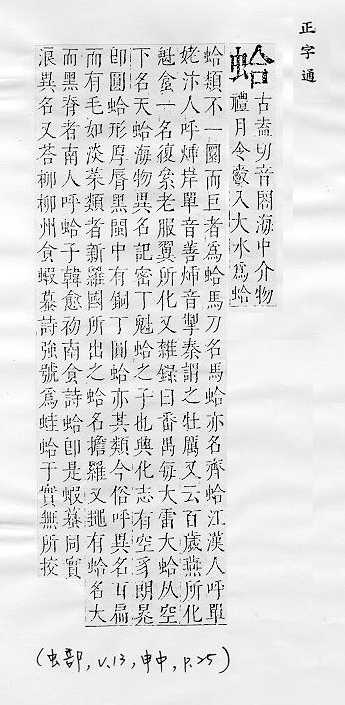 正字通
蛤
古盍切音閤海中介物
禮月令爵入大水爲蛤
蛤類不一圜而巨者爲蛤馬刀名馬蛤亦名齊蛤江漢人呼單
姥汴人呼 岸單音善 音掣秦謂之牡厲又云百歲燕所化
魁蛤一名復絫老服翼所化又雜錄曰番禺每大雷大蛤从空
下名天蛤海物異名記密丁魁蛤之子也興化志有空豸朗晃
卽圓蛤形厚脣黑閩中有銅丁圓蛤亦其類今俗呼異名 扁
而有毛如淡菜類者新羅國所出之蛤名擔羅又 有蛤名大
而黑脊者南人呼蛤子韓愈初南食詩蛤卽是蝦蟇同實
浪異名又荅柳柳州食蝦蟇詩強號爲蛙蛤于實無所挍
(虫部, v.13, 申中, p.25)